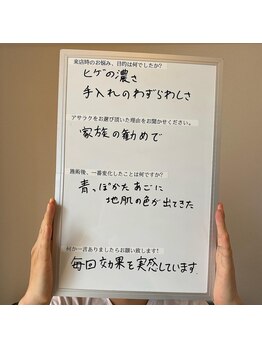 来店時のお悩み、目的は何でしたか?
ヒゲの濃さ
手入れのわずらわしさ
アサラクをお選び頂いた理由をお聞かせください。
家族の勧めで
施術後、一番変化したことは何ですか?
青っぽかたあごに
地肌の色が出てきた
何か一言ありましたらお願い致します!
毎回効果を実感しています.